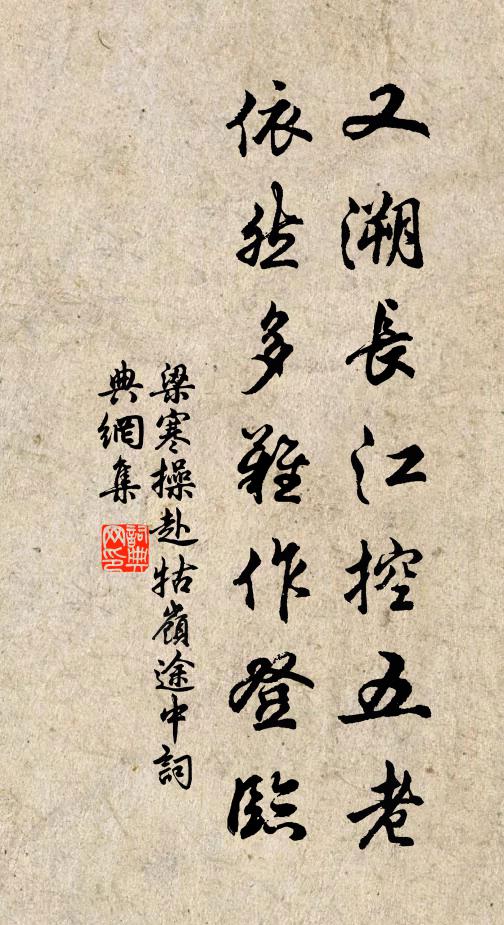 又溯長江控五老
依然多難作登臨
梁寒操赴牯嶺途中詞
典網集
詞典網印